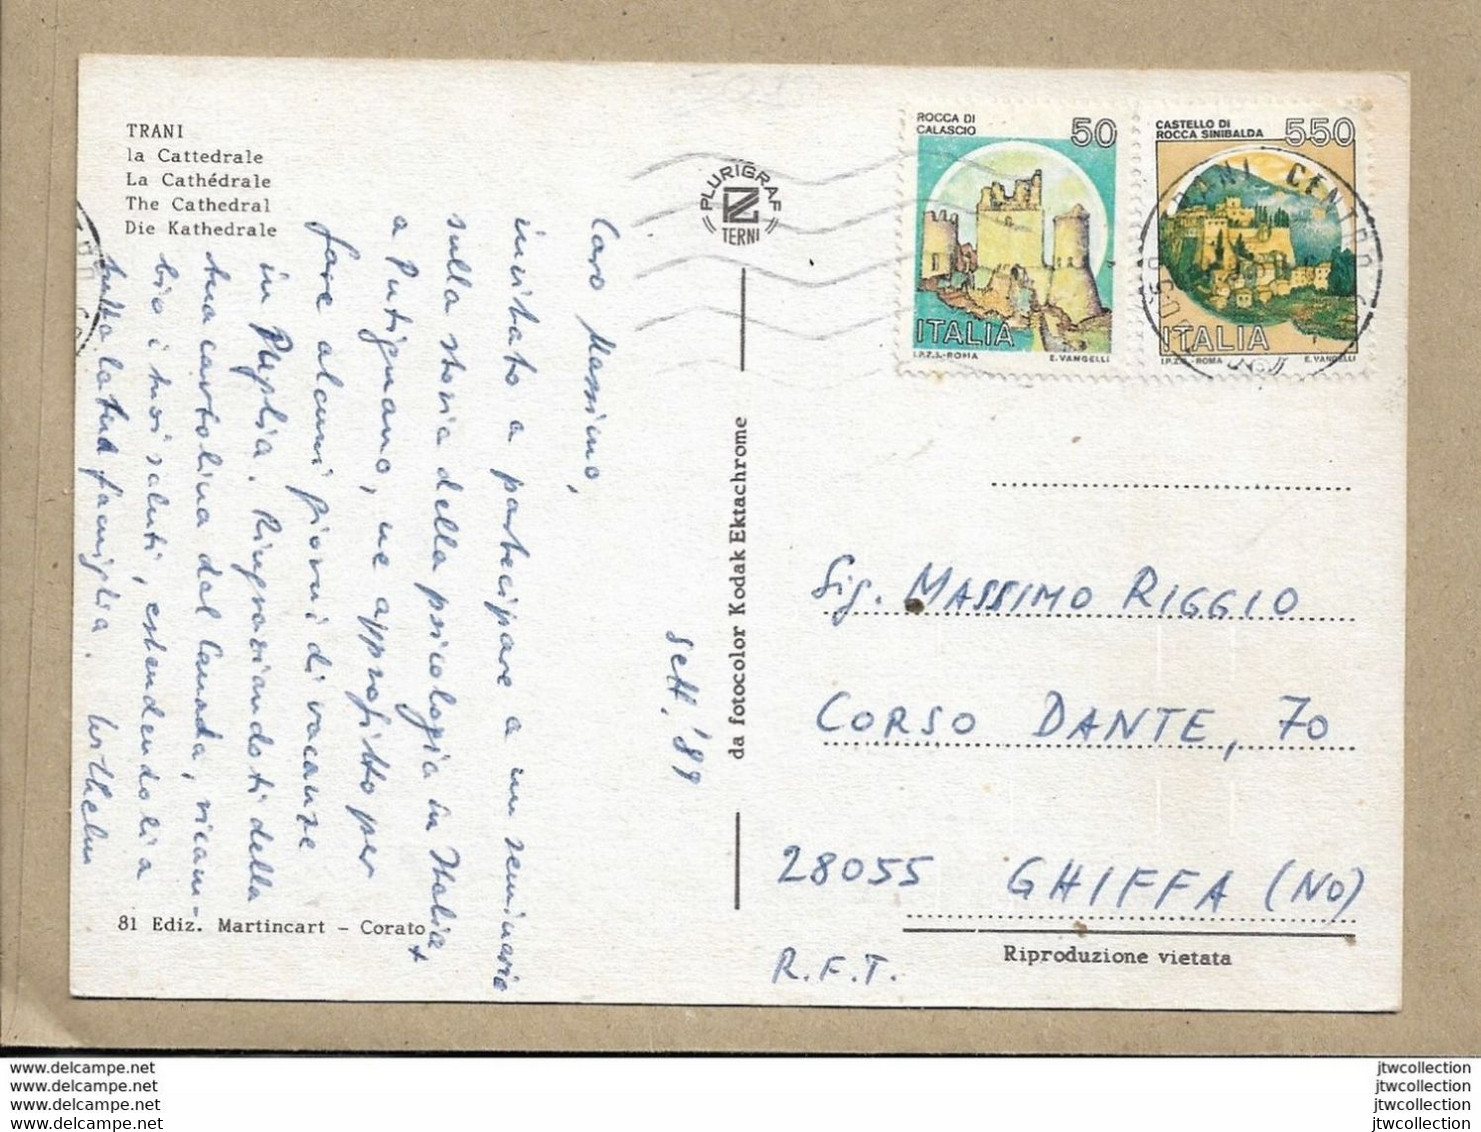 TRANI
la Cattedrale
La Cathédrale
The Cathedral
Die Kathedrale
PLURIGRAF
TERNI
ROCCA DI
CALASCIO
50
ITALIA
I.P.Z.S.-ROMA E. VANGELLI
CASTELLO DI
ROCCA SINIBALDA
550
ITALIA
I.P.Z.S.-ROMA E. VANGELLI
TRANI CENTRO
Caro Massimo,
invitato a partecipare a un seminario
sulla storia della psicologia in Italia
a Putignano, ne approfitto per
fare alcuni giorni di vacanze
in Puglia. Ringraziandoti della
tua cartolina dal Canada, ricam-
bio i tuoi saluti, estendendoli a
tutta la tua famiglia.
Sett. '89
da fotocolor Kodak Ektachrome
Sig. MASSIMO RIGGIO
CORSO DANTE, 70
28055 GHIFFA (NO)
R.F.T.
81 Ediz. Martincart - Corato
Riproduzione vietata
www.delcampe.net
www.delcampe.net
www.delcampe.net
www.delcampe.net
jtwcollection
jtwcollection
jtwcollection
jtwcollection